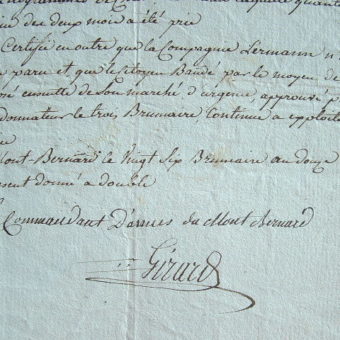 des deux mois a été prie
Certifie en outre que la Compagnie Lermann n
paru et que le citoyen Baudé par le moyen de
ensuitte de son marché d'urgence approuvé p
donnateur le trois Brumaire Continue a exploite
Mont-Bernard le Vingt Six Brumaire an douze
sent donné a double
Commandant D'armes du Mont Bernard
Girard